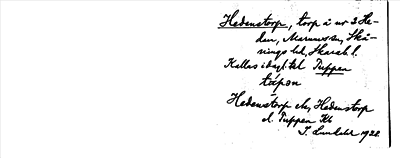 Hedenstorp, torp å nr 3 He-
den, Marums sn, Skå-
nings hd, Skarab. l.
Kallas i dagl. tal Tuppen
tåpən
Hedenstorp el. Hedenstorp
el. Tuppen Kb
1922